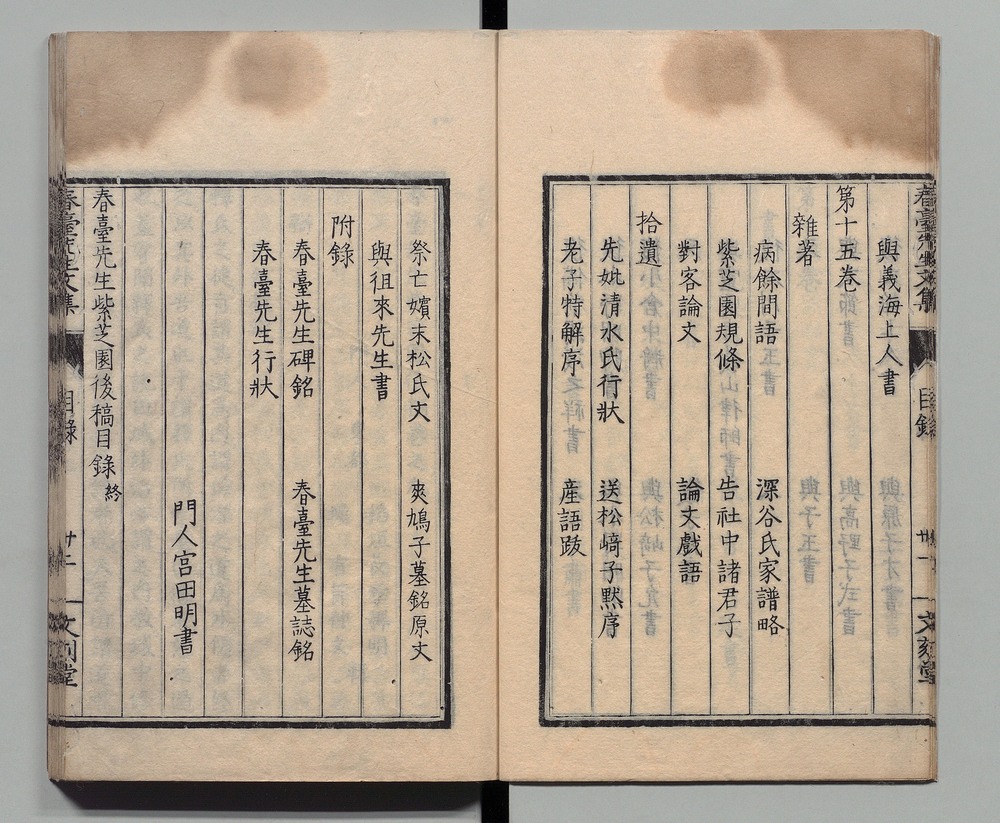 與義海上人書
第十五卷
雜著
病餘間語　深谷氏家譜略
紫芝園規條　告社中諸君子
對客論文　論文戲語
拾遺
先妣清水氏行狀　送松﨑子黙序
老子特解序　産語跋
春臺先生文集　目録　文刻堂
祭亡嬪末松氏文　爽鳩子墓銘原文
與徂來先生書
附錄
春臺先生碑銘　春臺先生墓誌銘
春臺先生行狀
門人宮田明書
春臺先生紫芝園後稿目錄終
春臺先生文集　目錄　廿二　文刻堂